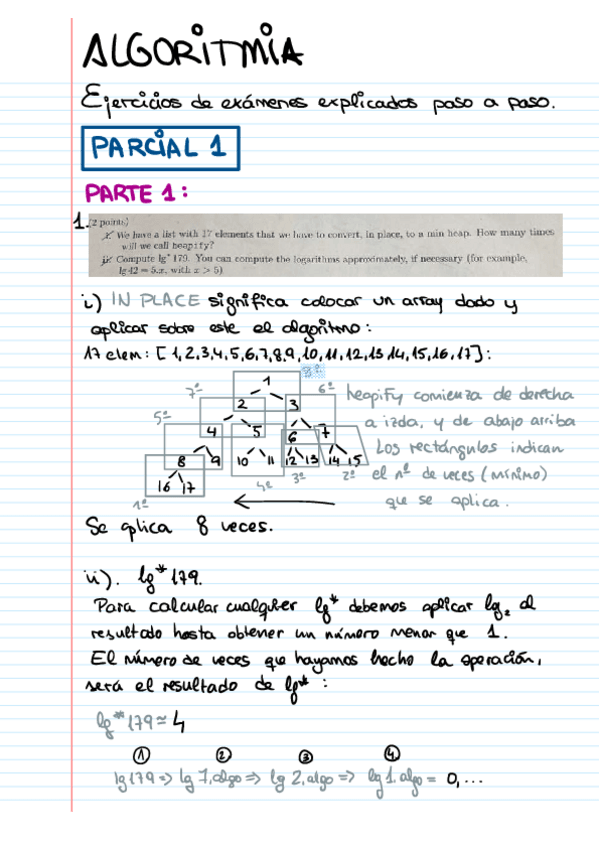 ALGORITMIA
Ejercicios de exámenes explicados paso a paso.
PARCIAL 1
PARTE 1:
1. (2 points)
i. We have a list with 17 elements that we have to convert, in place, to a min heap. How many times
will we call heapify?
ii. Compute lg* 179. You can compute the logarithms approximately, if necessary (for example,
lg 42 = 5.x, with x > 5)
i) IN PLACE significa colocar un array dado y
aplicar sobre este el algoritmo:
17 elem: [1,2,3,4,5,6,7,8,9,10,11,12,13 14,15,16,17]:
8º
1
7º 6º
2 3
heapify comienza de derecha
5º
4 5 6 7
a izda, y de abajo arriba
8 9 10 11 12 13 14 15
Los rectángulos indican
16 17 4º 3º 2º
el nº de veces (mínimo)
1º
que se aplica.
Se aplica 8 veces.
ii). lg* 179.
Para calcular cualquier lg* debemos aplicar lg₂ al
resultado hasta obtener un número menor que 1.
El número de veces que hayamos hecho la operación,
será el resultado de lg*:
lg* 179 ≃ 4
① ② ③ ④
lg 179 => lg 7,algo => lg 2,algo => lg 1.algo = 0,...